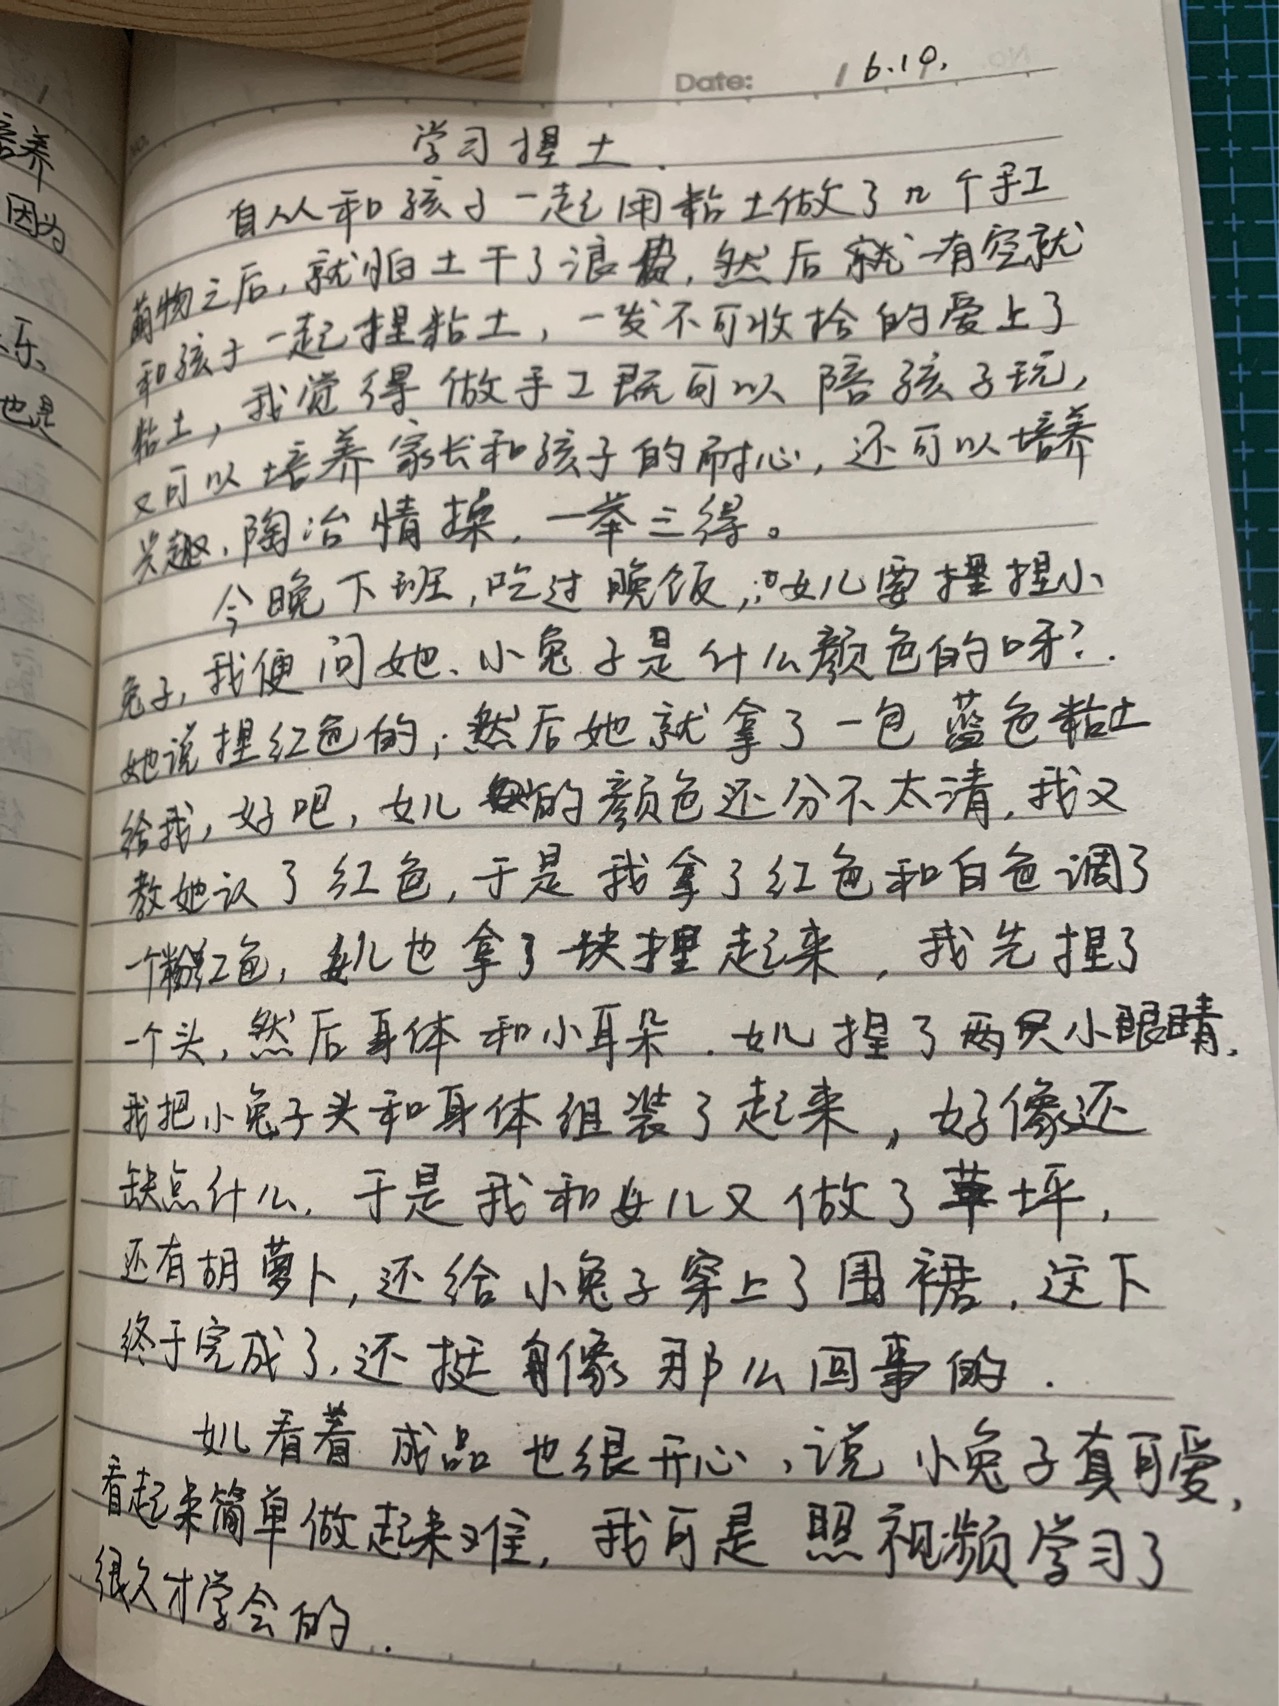 养
因为
乐
也是
Date: 16.19.
学习捏土.
自从和孩子一起用粘土做了几个手工
萌物之后,就怕土干了浪费,然后就一有空就
和孩子一起捏粘土,一发不可收拾的爱上了
粘土,我觉得做手工既可以陪孩子玩,
又可以培养家长和孩子的耐心,还可以培养
兴趣,陶冶情操,一举三得。
今晚下班,吃过晚饭,女儿要捏捏小
兔子,我便问她、小兔子是什么颜色的呀?.
她说捏红色的;然后她就拿了一包蓝色粘土
给我,好吧,女儿的颜色还分不太清,我又
教她认了红色,于是我拿了红色和白色调了
一个粉红色,女儿也拿了一块捏起来,我先捏了
一个头,然后身体和小耳朵.女儿捏了两只小眼睛,
我把小兔子头和身体组装了起来,好像还
缺点什么,于是我和女儿又做了草坪,
还有胡萝卜,还给小兔子穿上了围裙,这下
终于完成了,还挺像那么回事的.
女儿看着成品也很开心,说小兔子真可爱,
看起来简单做起来难,我可是照视频学习了
很久才学会的.